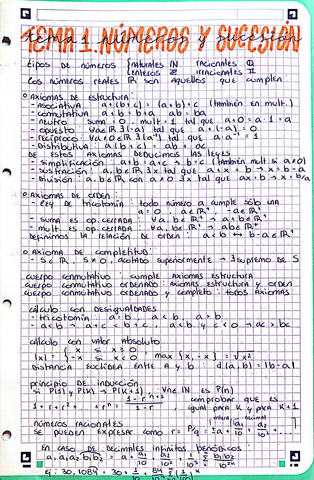 TEMA 1. NÚMEROS Y SUCESIÓN
tipos de números { naturales ℕ racionales ℚ
enteros ℤ irracionales 𝕀
Los números reales ℝ son aquellos que cumplen:
o Axiomas de estructura:
- asociativa: a+(b+c) = (a+b)+c (también en mult.)
- conmutativa: a+b = b+a ab = ba
- neutro: suma = 0, mult = 1 tal que a+0=a · 1 = a
- opuesto: ∀a∈ℝ ∃(-a) tal que a+(-a) = 0
- recíproco: ∀a≠0∈ℝ ∃(a⁻¹) tal que a·a⁻¹ = 1
- Distributiva: a(b+c) = ab + ac
De estos axiomas deducimos las leyes
- simplificación: a+b = a+c → b=c (también mult si a≠0)
- sustracción: a,b∈ℝ ∃x tal que a+x = b → x = b-a
- división: a,b∈ℝ con a≠0 ∃x tal que ax=b → x=b/a
o Axiomas de orden:
- Ley de tricotomía: todo número a cumple sólo una
a=0, a∈ℝ⁺, -a∈ℝ⁺
- suma es op. cerrada: ∀a,b∈ℝ⁺ → a+b∈ℝ⁺
- mult es op. cerrada: ∀a,b∈ℝ⁺ → ab∈ℝ⁺
Definimos la relación de orden: a<b ↔ b-a∈ℝ⁺
o Axioma de completitud:
- S⊂ℝ, S≠0, acotado superiormente → ∃ supremo de S
cuerpo conmutativo: cumple axiomas estructura
cuerpo conmutativo ordenado: axiomas estructura y orden
cuerpo conmutativo ordenado y completo: todos axiomas
cálculo con desigualdades
- tricotomía: a=b, a<b, a>b
- a<b → a+c<b+c, a<b y c<0 → ac>bc
cálculo con valor absoluto
|x| = { x si x≥0, -x si x<0, max {x,-x} = √x²
Distancia euclídea entre a y b: d(a,b) = |b-a|
principio de inducción
si P(1) y P(K) → P(K+1), ∀n∈ℕ es P(n)
1+r+r²+ rⁿ = 1-rⁿ⁺¹/1-r, comprobar que es igual para K y para K+1
números racionales
se pueden expresar como r = P/q
en caso de decimales infinitos periódicos